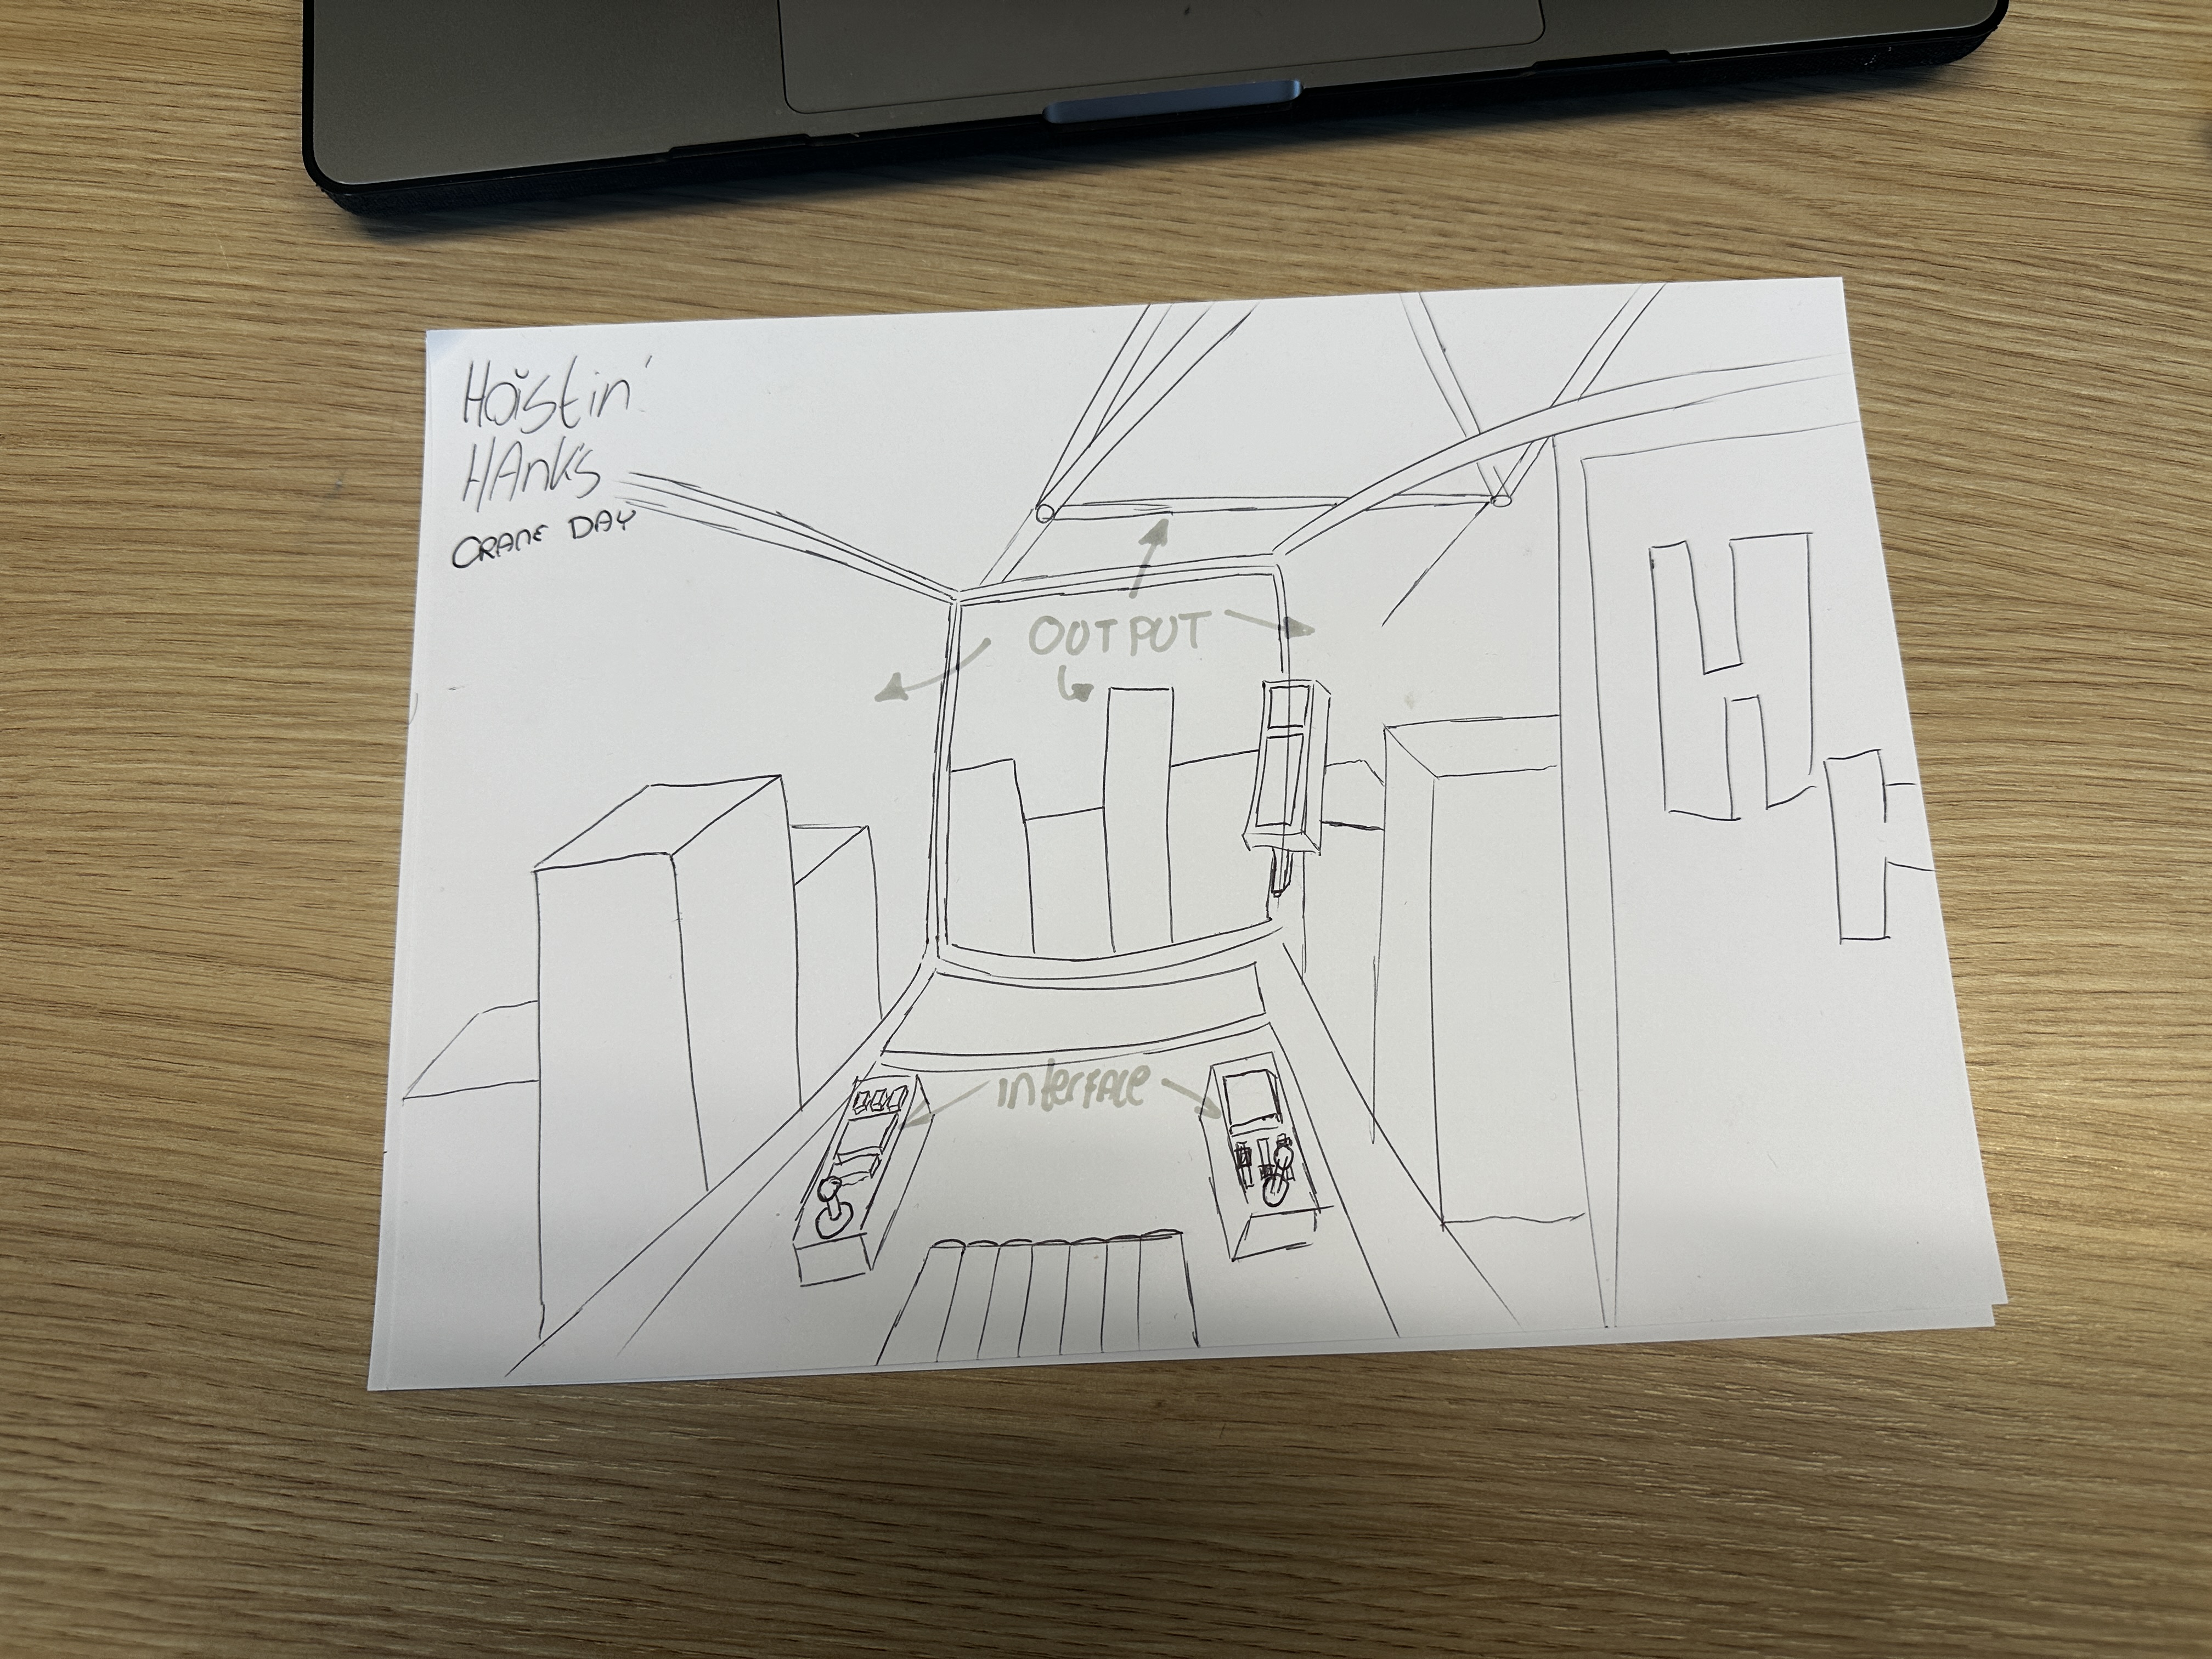 Hoistin'
HAnk's
CRANE DAY
OUTPUT
interface
H
H